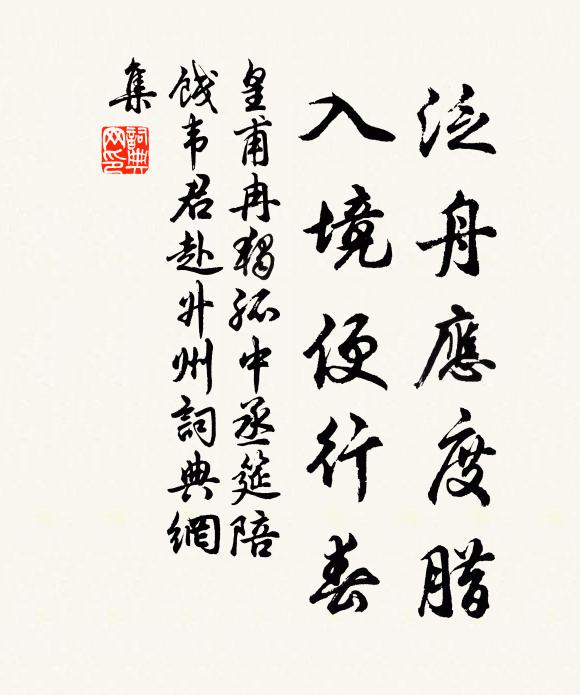 泛舟應度腊
入境便行春
皇甫冉獨孤中丞筵陪
餞韦君赴升州詞典網
集
詞典网印